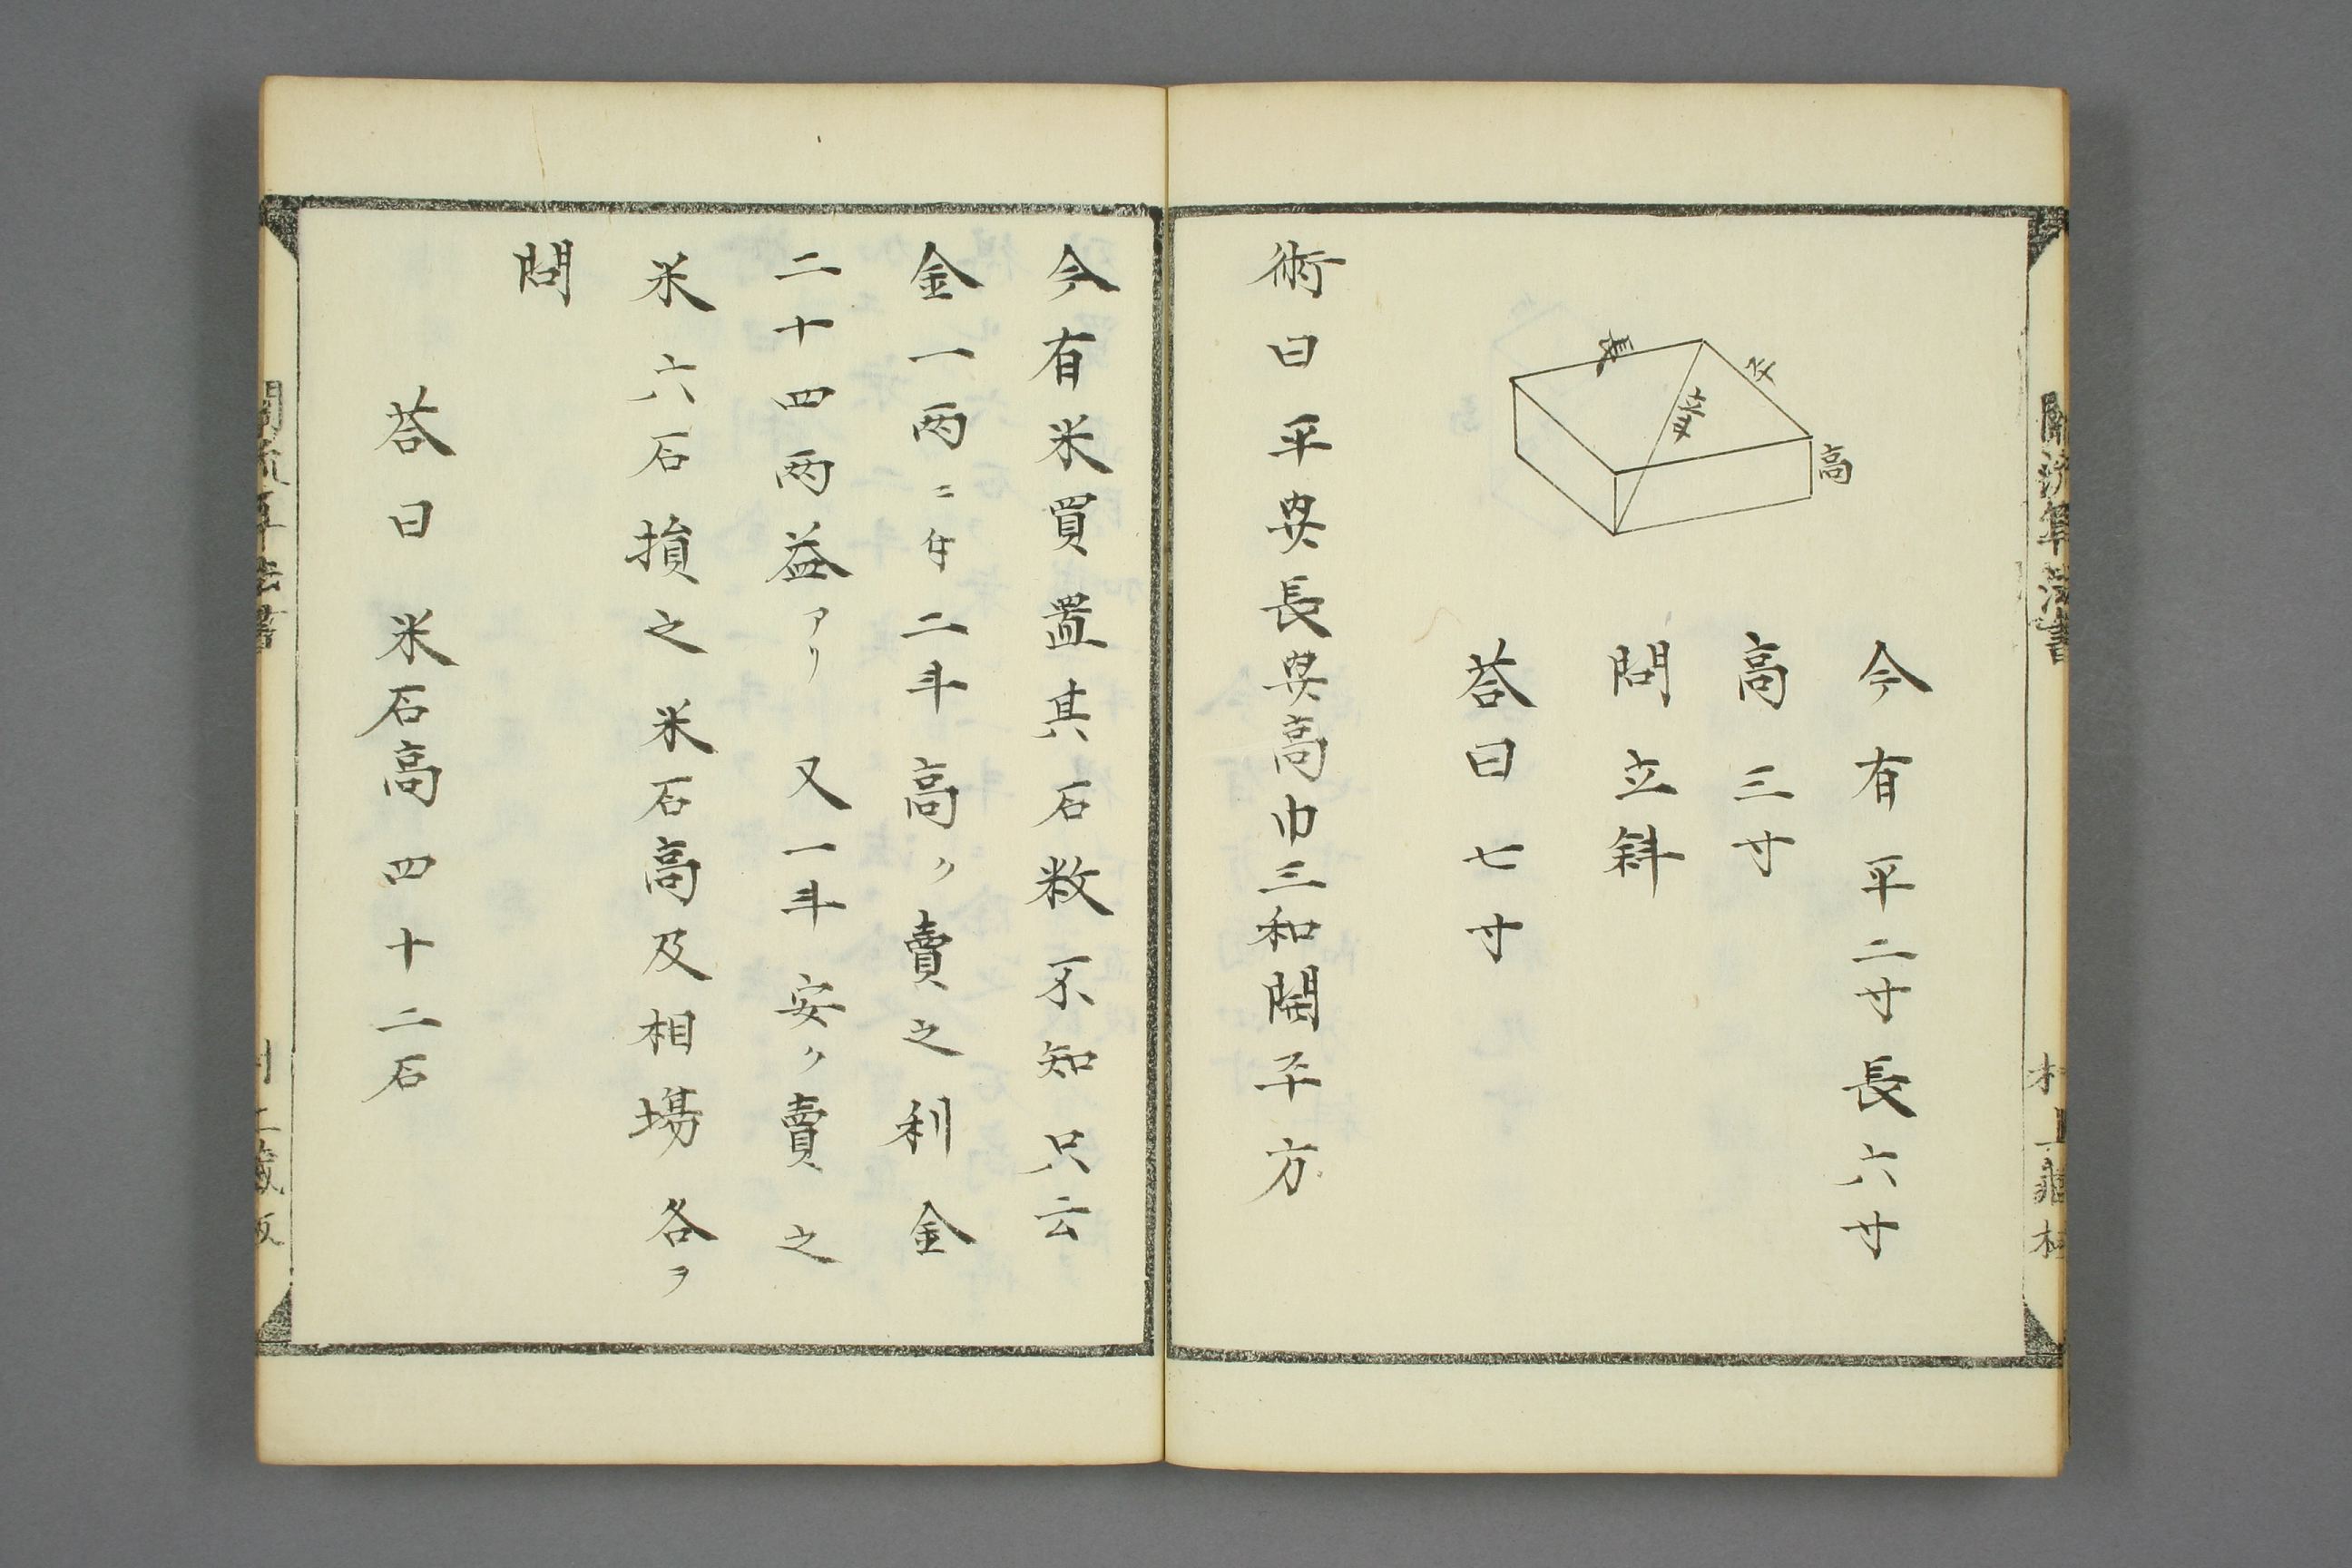 関流算法書
高
今有平二寸長六寸
高三寸
問立斜
荅曰七寸
術曰平巾長巾高巾三和開平方
今有米買置其石数不知只云
金一两ニ付二斗高ク賣之利金
二十四两益アリ又一斗安ク賣之
米六石損之米石高及相場各ヲ
問
荅曰米石高四十二石